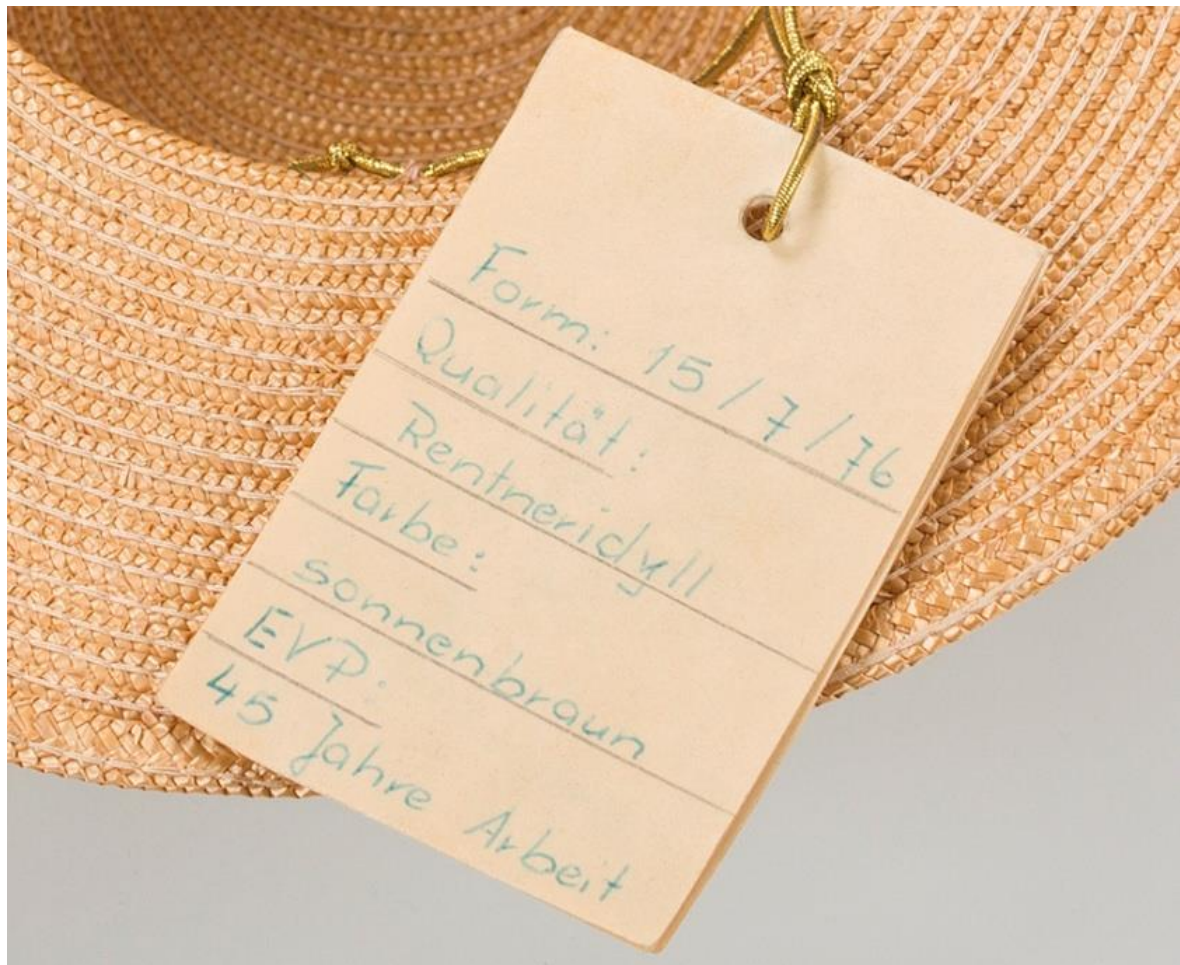 Form: 15/7/76
Qualität:
Rentneridyll
Farbe:
sonnenbraun
EVP:
45 Jahre Arbeit